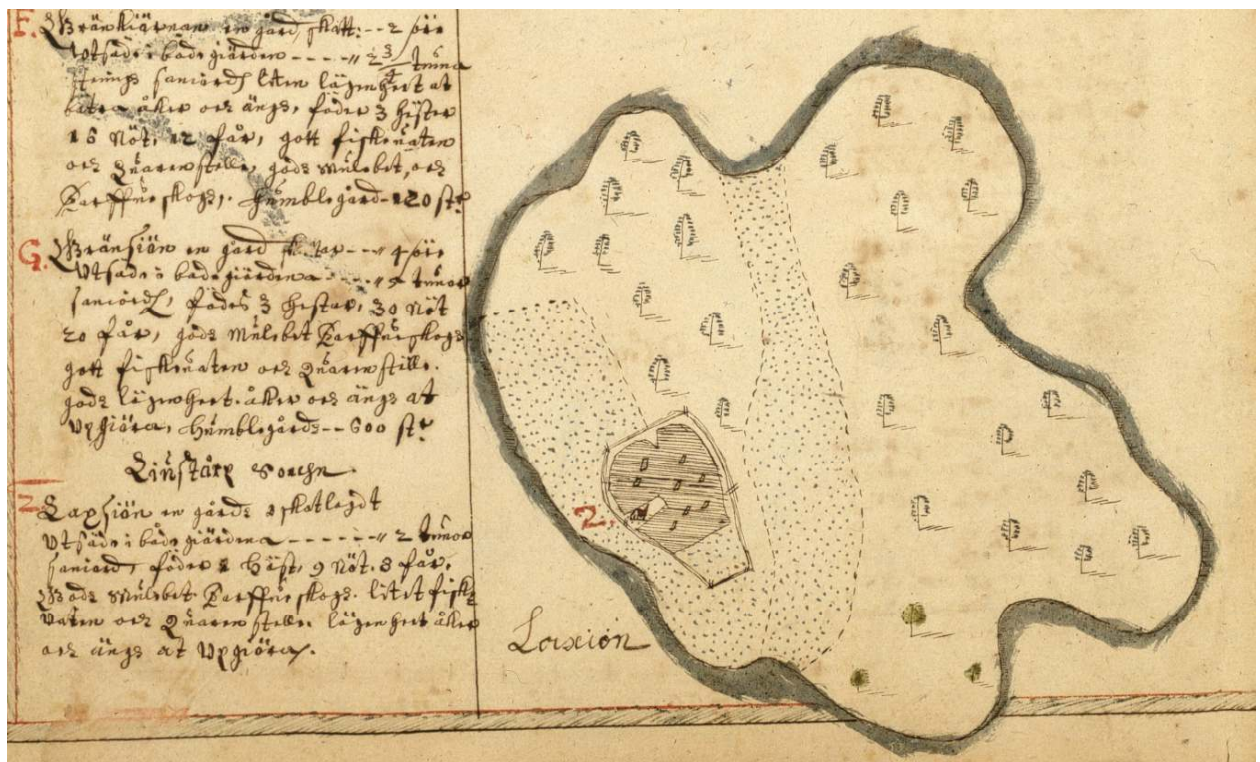 F. Gränkiärnan en gård, skatt: -- 2 öre
Utsäde i både giärden ---- " 2 3/4 tunna
saniord, liten lägenheet at
bättra åker och ängh, föder 3 hester
15 Nöt, 12 får, gott fiskeuaten
och Quarnstelle, gode Mulebet, och
Barffrue skogh, Humblegård - 120 st
G. Gränsiön en gård skattar --- " 4 öre
Utsäde i bade giärdena ---- " tunor
saniord, födes 3 hestar, 30 Nöt
20 får, gode Mulebet Barffrueskogh
gott fiskeuaten och Quarnstelle.
gode lägenheet åker och ängh at
Upgiöra, Humblegårds -- 600 st
Linstårp Sochn
Z Laxsiön en gårdh skatlagdt
Utsäde i både giärdena ------ " 2 tunor
saniord, föder 2 Häst, 9 Nöt. 8 får.
Gode Mulebet Barffrue skogh. litet fiske
vaten och Quarnstelle lägenheet åker
och ängh at Upgiöra.
2.
Laxiön